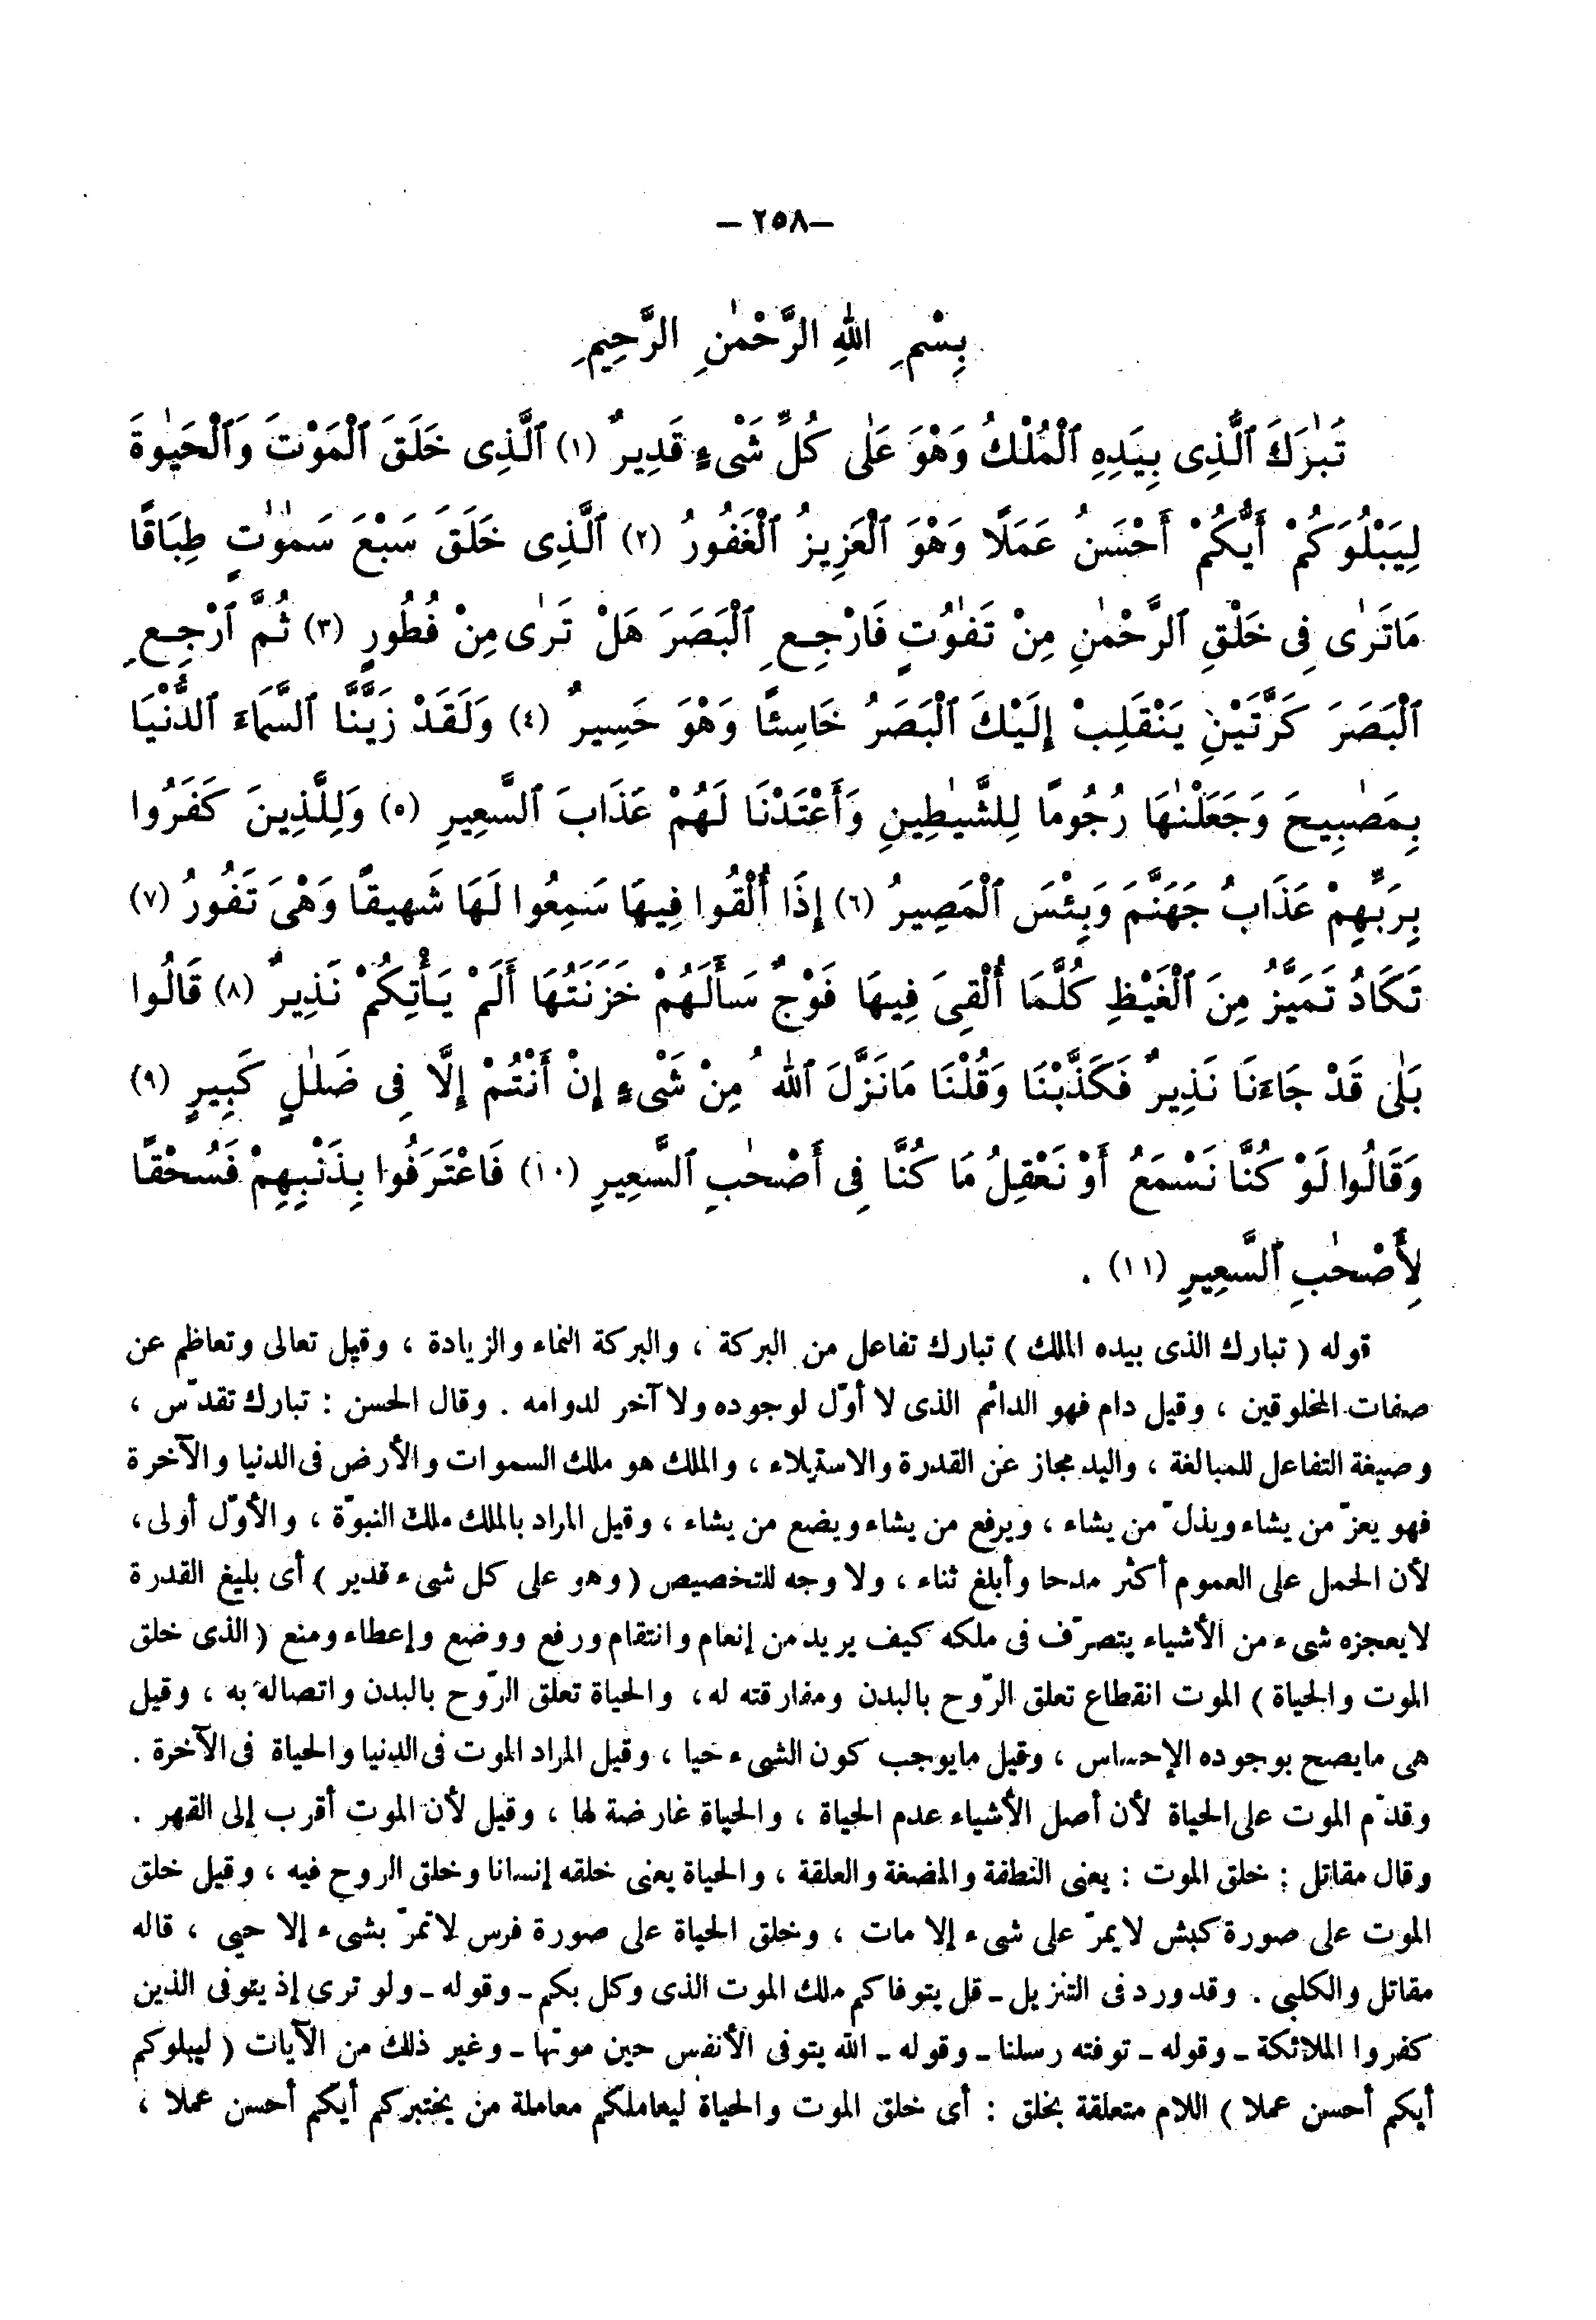 — ٢٥٨ —
بِسْمِ اللهِ الرَّحْمٰنِ الرَّحِيمِ
تَبٰرَكَ ٱلَّذِى بِيَدِهِ ٱلْمُلْكُ وَهْوَ عَلٰى كُلِّ شَىْءٍ قَدِيرٌ (١) ٱلَّذِى خَلَقَ ٱلْمَوْتَ وَٱلْحَيٰوةَ
لِيَبْلُوَكُمْ أَيُّكُمْ أَحْسَنُ عَمَلًا وَهْوَ ٱلْعَزِيزُ ٱلْغَفُورُ (٢) ٱلَّذِى خَلَقَ سَبْعَ سَمٰوٰتٍ طِبَاقًا
مَاتَرٰى فِى خَلْقِ ٱلرَّحْمٰنِ مِنْ تَفٰوُتٍ فَارْجِعِ ٱلْبَصَرَ هَلْ تَرٰى مِنْ فُطُورٍ (٣) ثُمَّ ٱرْجِعِ
ٱلْبَصَرَ كَرَّتَيْنِ يَنْقَلِبْ إِلَيْكَ ٱلْبَصَرُ خَاسِئًا وَهْوَ حَسِيرٌ (٤) وَلَقَدْ زَيَّنَّا ٱلسَّمَاءَ ٱلدُّنْيَا
بِمَصٰبِيحَ وَجَعَلْنٰهَا رُجُومًا لِلشَّيٰطِينِ وَأَعْتَدْنَا لَهُمْ عَذَابَ ٱلسَّعِيرِ (٥) وَلِلَّذِينَ كَفَرُوا
بِرَبِّهِمْ عَذَابُ جَهَنَّمَ وَبِئْسَ ٱلْمَصِيرُ (٦) إِذَا أُلْقُوا فِيهَا سَمِعُوا لَهَا شَهِيقًا وَهْىَ تَفُورُ (٧)
تَكَادُ تَمَيَّزُ مِنَ ٱلْغَيْظِ كُلَّمَا أُلْقِىَ فِيهَا فَوْجٌ سَأَلَهُمْ خَزَنَتُهَا أَلَمْ يَأْتِكُمْ نَذِيرٌ (٨) قَالُوا
بَلٰى قَدْ جَاءَنَا نَذِيرٌ فَكَذَّبْنَا وَقُلْنَا مَانَزَّلَ ٱللهُ مِنْ شَىْءٍ إِنْ أَنْتُمْ إِلَّا فِى ضَلٰلٍ كَبِيرٍ (٩)
وَقَالُوا لَوْ كُنَّا نَسْمَعُ أَوْ نَعْقِلُ مَا كُنَّا فِى أَصْحٰبِ ٱلسَّعِيرِ (١٠) فَاعْتَرَفُوا بِذَنْبِهِمْ فَسُحْقًا
لِأَصْحٰبِ ٱلسَّعِيرِ (١١) .
قوله ( تبارك الذى بيده الملك ) تبارك تفاعل من البركة ، والبركة النماء والزيادة ، وقيل تعالى وتعاظم عن
صفات المخلوقين ، وقيل دام فهو الدائم الذى لا أوّل لوجوده ولا آخر لدوامه . وقال الحسن : تبارك تقدّس ،
وصيغة التفاعل للمبالغة ، واليد مجاز عن القدرة والاستيلاء ، والملك هو ملك السموات والأرض فى الدنيا والآخرة
فهو يعزّ من يشاء ويذلّ من يشاء ، ويرفع من يشاء ويضع من يشاء ، وقيل المراد بالملك ملك النبوّة ، والأوّل أولى ،
لأن الحمل على العموم أكثر مدحا وأبلغ ثناء ، ولا وجه للتخصيص ( وهو على كل شىء قدير ) أى بليغ القدرة
لايعجزه شىء من الأشياء يتصرّف فى ملكه كيف يريد من إنعام وانتقام ورفع ووضع وإعطاء ومنع ( الذى خلق
الموت والحياة ) الموت انقطاع تعلق الرّوح بالبدن ومفارقته له ، والحياة تعلق الرّوح بالبدن واتصاله به ، وقيل
هى مايصح بوجوده الإحساس ، وقيل مايوجب كون الشىء حيا ، وقيل المراد الموت فى الدنيا والحياة فى الآخرة .
وقدّم الموت على الحياة لأن أصل الأشياء عدم الحياة ، والحياة عارضة لها ، وقيل لأن الموت أقرب إلى القهر .
وقال مقاتل : خلق الموت : يعنى النطفة والمضغة والعلقة ، والحياة يعنى خلقه إنسانا وخلق الروح فيه ، وقيل خلق
الموت على صورة كبش لايمرّ على شىء إلا مات ، وخلق الحياة على صورة فرس لاتمرّ بشىء إلا حيى ، قاله
مقاتل والكلبى . وقد ورد فى التنزيل ـ قل يتوفاكم ملك الموت الذى وكل بكم ـ وقوله ـ ولو ترى إذ يتوفى الذين
كفروا الملائكة ـ وقوله ـ توفته رسلنا ـ وقوله ـ الله يتوفى الأنفس حين موتها ـ وغير ذلك من الآيات ( ليبلوكم
أيكم أحسن عملا ) اللام متعلقة بخلق : أى خلق الموت والحياة ليعاملكم معاملة من يختبركم أيكم أحسن عملا ،